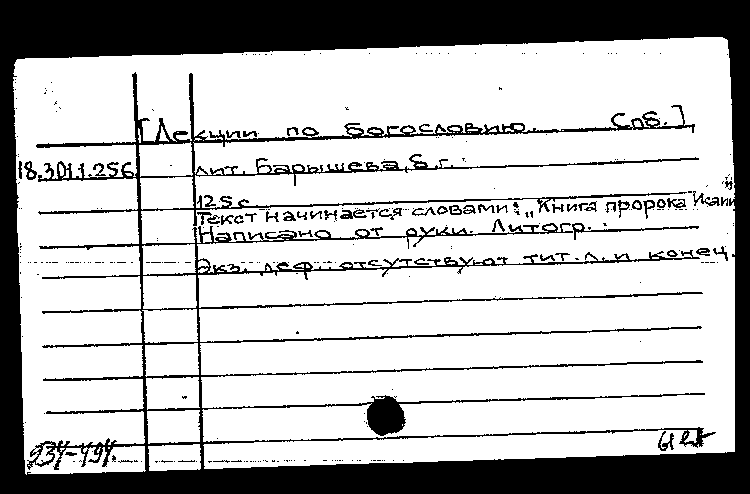 [Лекции по богословию. Спб.],
18.301.1.256
лит. Барышева, б.г.
125 с.
Текст начинается словами: „Книга пророка Исаии"
Написано от руки. Литогр.
Экз. деф.: отсутствуют тит. л. и конец.